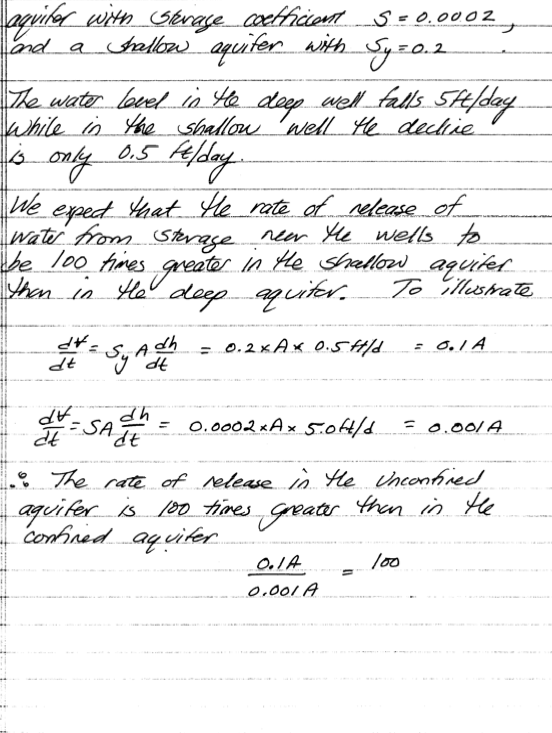 aquifer with storage coefficient S = 0.0002,
and a shallow aquifer with Sy = 0.2 .
The water level in the deep well falls 5ft/day
while in the shallow well the decline
is only 0.5 ft/day.
We expect that the rate of release of
water from storage near the wells to
be 100 times greater in the shallow aquifer
than in the deep aquifer. To illustrate
dV/dt = Sy A dh/dt = 0.2 x A x 0.5 ft/d = 0.1 A
dV/dt = SA dh/dt = 0.0002 x A x 5.0ft/d = 0.001 A
∴ The rate of release in the Unconfined
aquifer is 100 times greater than in the
confined aquifer
0.1A / 0.001A = 100